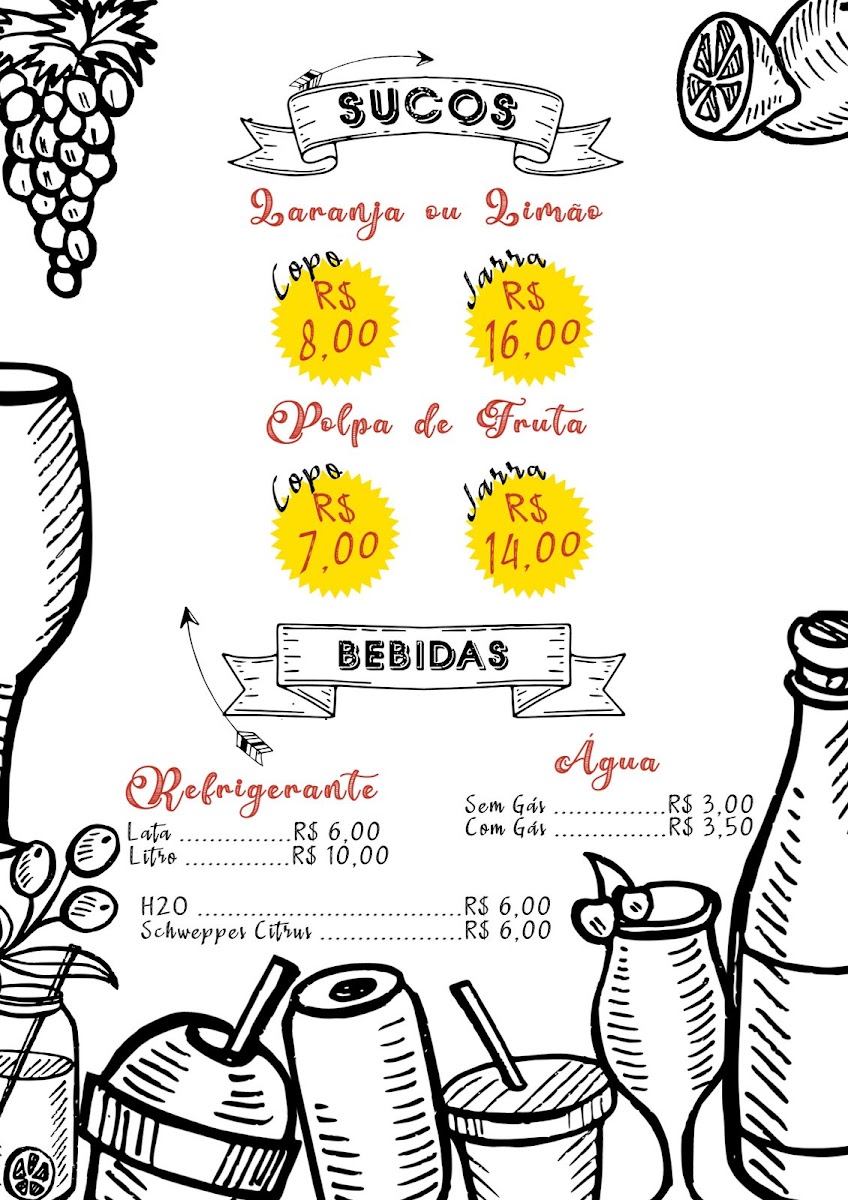 SUCOS
Laranja ou Limão
Copo
R$
8,00
Jarra
R$
16,00
Polpa de Fruta
Copo
R$
7,00
Jarra
R$
14,00
BEBIDAS
Refrigerante
Lata ...............R$ 6,00
Litro ..............R$ 10,00
Água
Sem Gás ...............R$ 3,00
Com Gás ...............R$ 3,50
H2O ...................................R$ 6,00
Schweppes Citrus ...................R$ 6,00